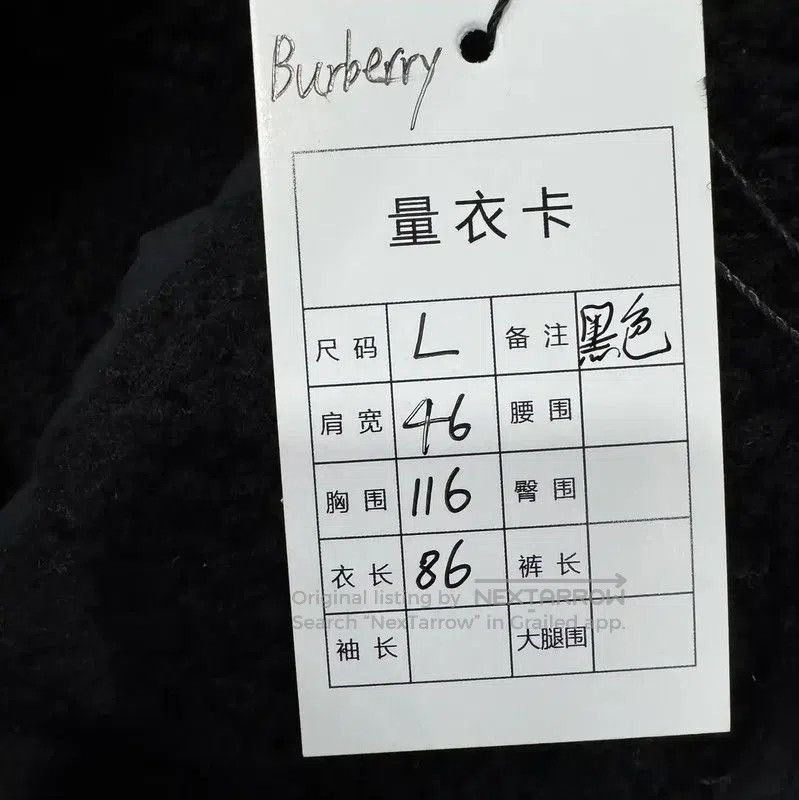 Burberry
量衣卡
尺码 L 备注 黑色
肩宽 46 腰围
胸围 116 臀围
衣长 86 裤长
Original listing by NEXTARROW
Search "NexTarrow" in Grailed app.
袖长 大腿围